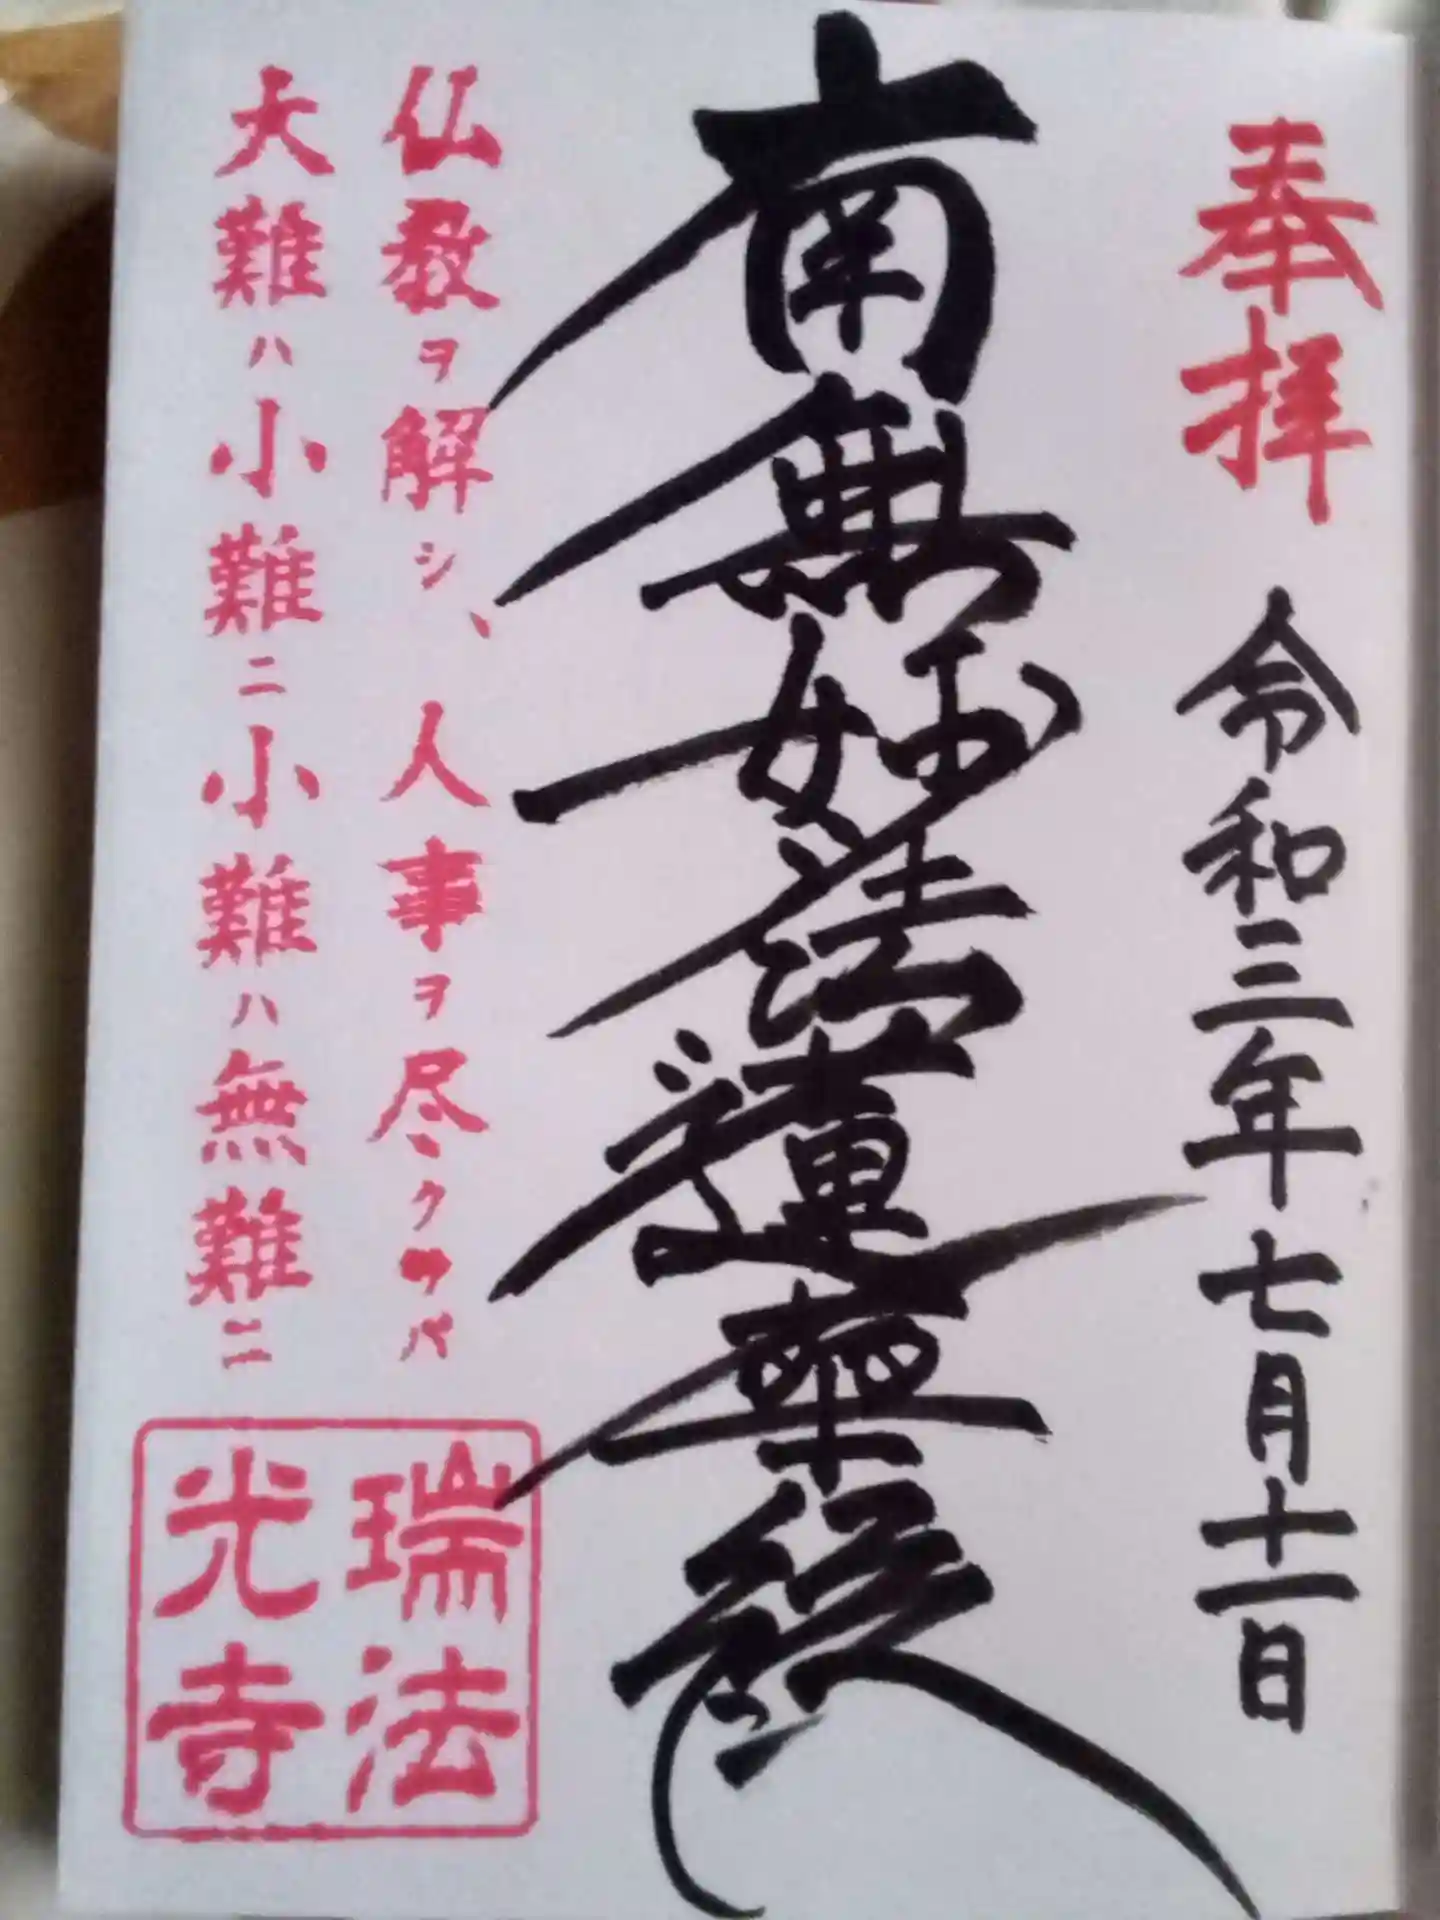 奉拝 令和三年七月十一日
南無妙法蓮華経
仏教ヲ解シ、人事ヲ尽クサバ
大難ハ小難ニ小難ハ無難ニ
瑞法
光寺